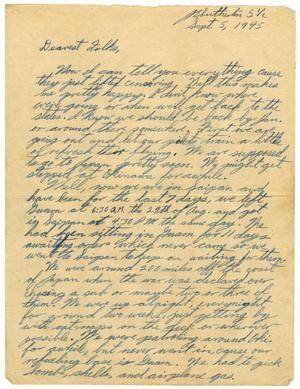 S 1/c
Sept. 5, 1945
Dearest Folks,
Now I can tell you everything cause
they just lifted censoring. Well this makes
me pretty happy. I don't know where
were going or when we'll get back to the
states. I know we should be back by Jan.
or around there somewhere. First we are
going out and let our pilots train a little
or refresh their flying. We are supposed
to go to Japan pretty soon. We might get
stopped at Okinawa for awhile.
Well, now we are in Saipan and
have been for the last 7 days, we left
Guam at 6:30 A.M. the 28th of Aug. and got
in Saipan at 4:30 P.M. the same day. We
had been sitting in Guam for 7 days
awaiting orders which never came so we
went to Saipan to keep on waiting for them.
We were around 200 miles off the coast
of Japan when the war was declared over
chasing a sub or maybe two or three of
them. We were up all night, every night
for around two weeks, just getting by
with cat naps on the deck or wherever
possible. We were patroling around
for awhile, but never went in, cause our
refueling base is Guam. We had to pick
bombs, shells, and airplane gas.